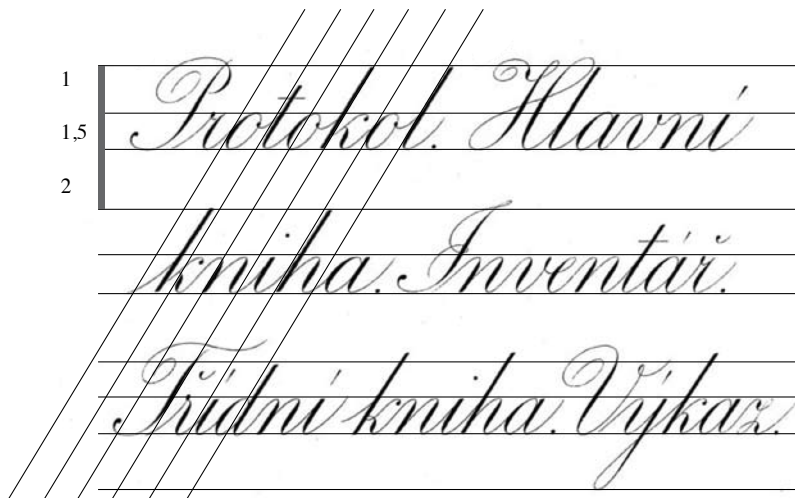 1
Protokol. Hlavní
1,5
2
kniha. Inventář.
Třídní kniha. Výkaz.